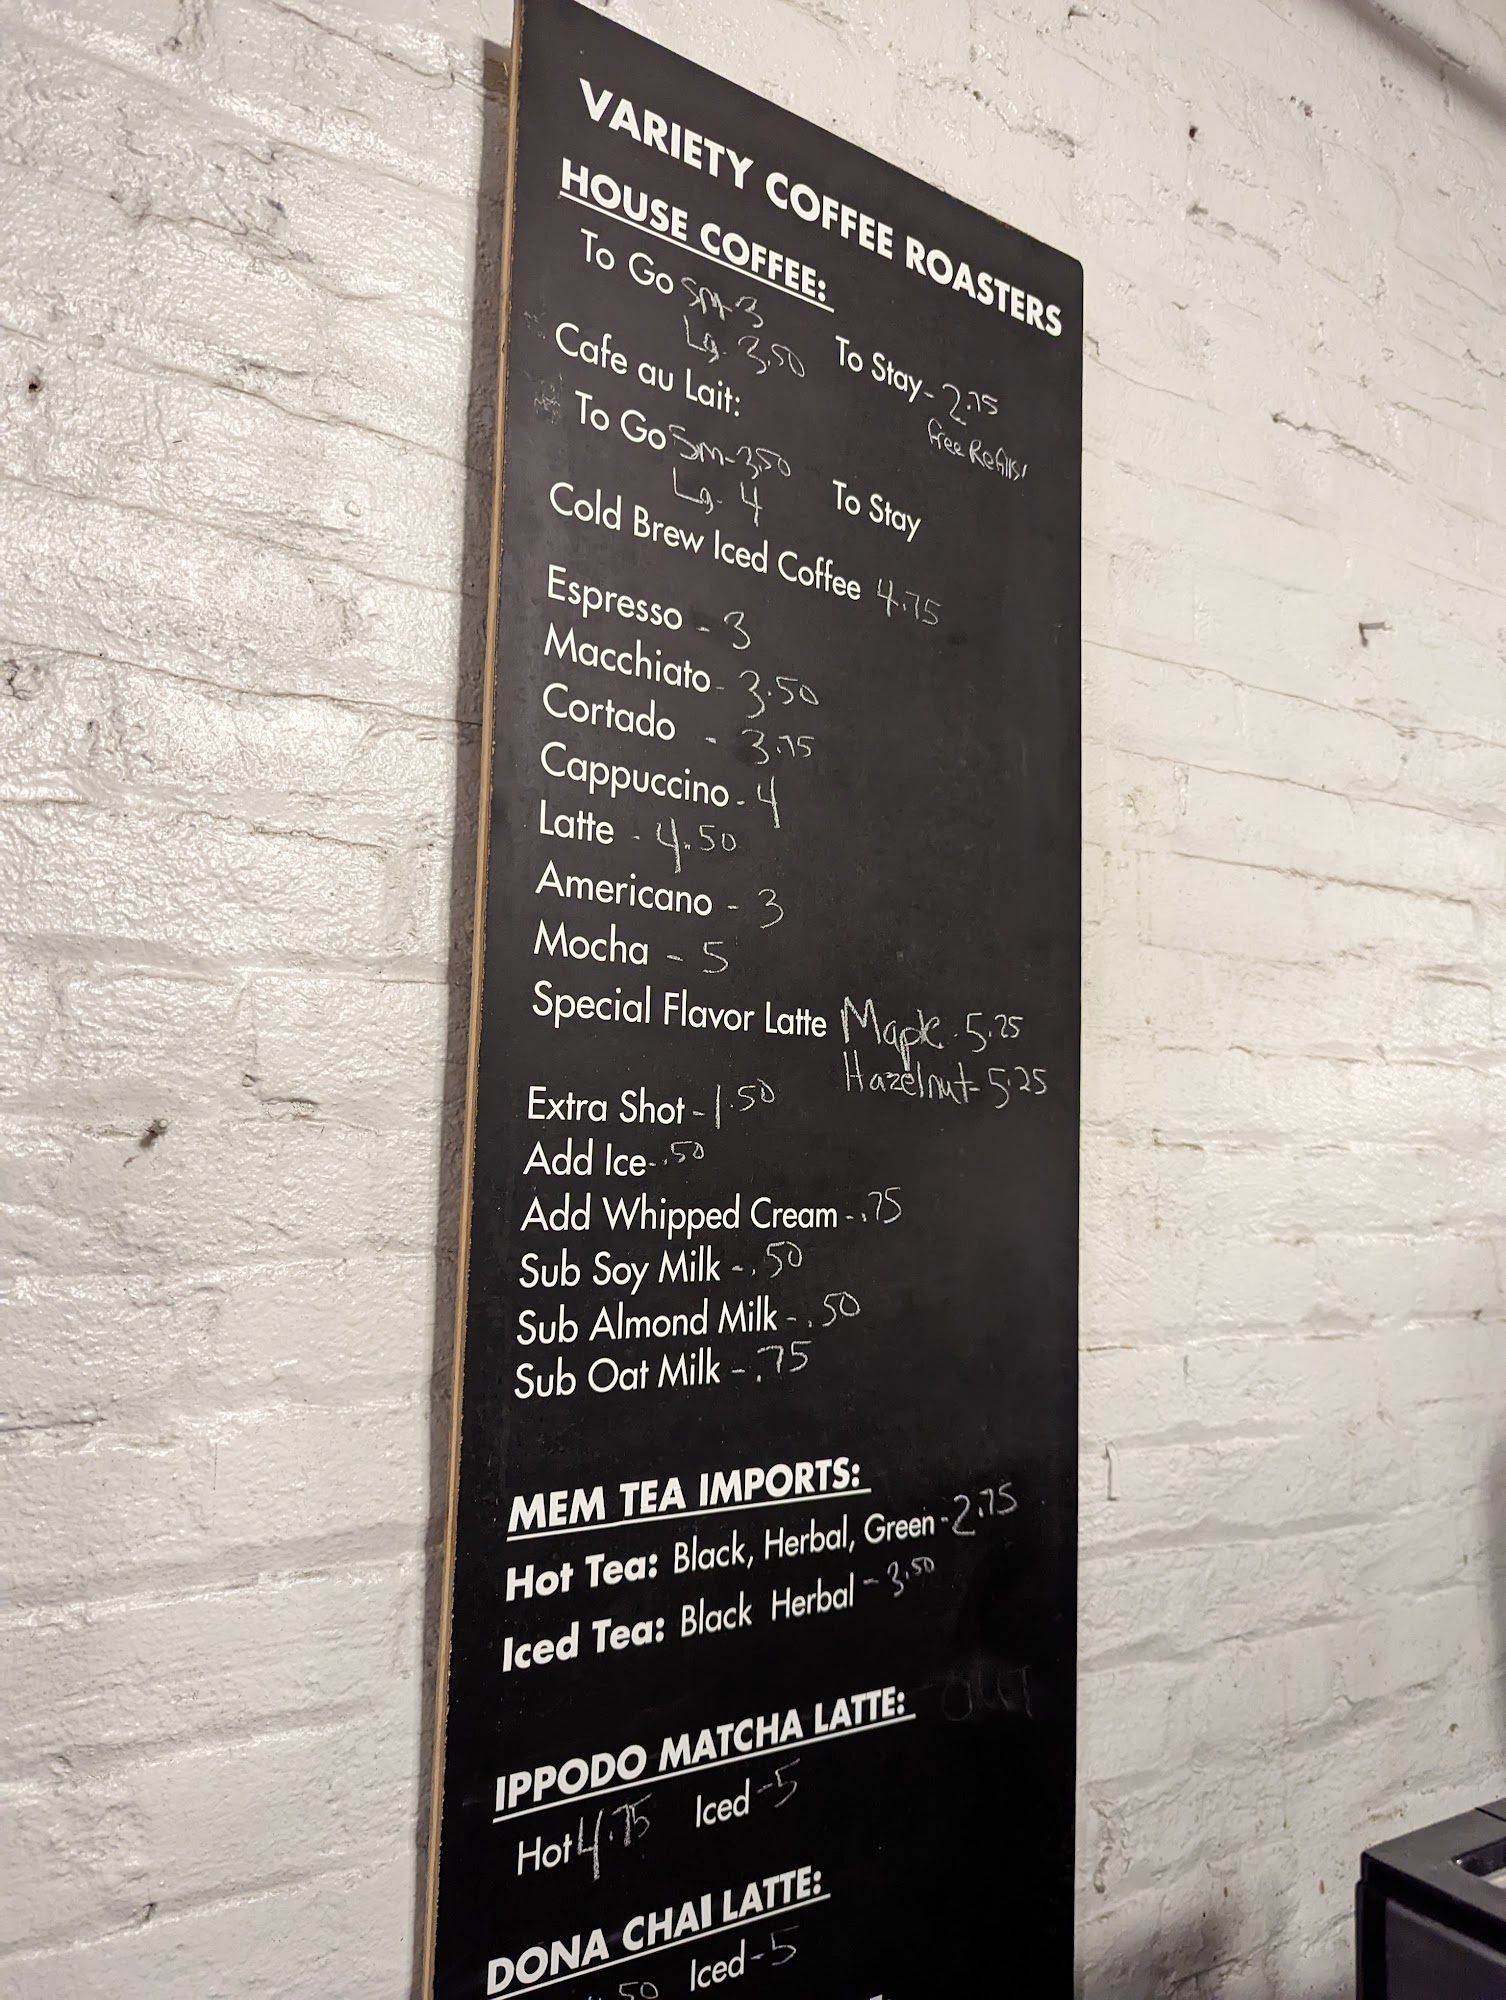 VARIETY COFFEE ROASTERS
HOUSE COFFEE:
To Go Sm-3
Lg. 3.50
To Stay- 2.75
free Refills!
Cafe au Lait:
To Go Sm-3.50
Lg- 4
To Stay
Cold Brew Iced Coffee 4.75
Espresso - 3
Macchiato- 3.50
Cortado - 3.75
Cappuccino - 4
Latte - 4.50
Americano - 3
Mocha - 5
Special Flavor Latte Maple - 5.25
Hazelnut- 5.25
Extra Shot - 1.50
Add Ice- .50
Add Whipped Cream - .75
Sub Soy Milk - .50
Sub Almond Milk - .50
Sub Oat Milk - .75
MEM TEA IMPORTS:
Hot Tea: Black, Herbal, Green - 2.75
Iced Tea: Black Herbal - 3.50
IPPODO MATCHA LATTE:
Hot 4.75 Iced - 5
DONA CHAI LATTE:
.50 Iced - 5